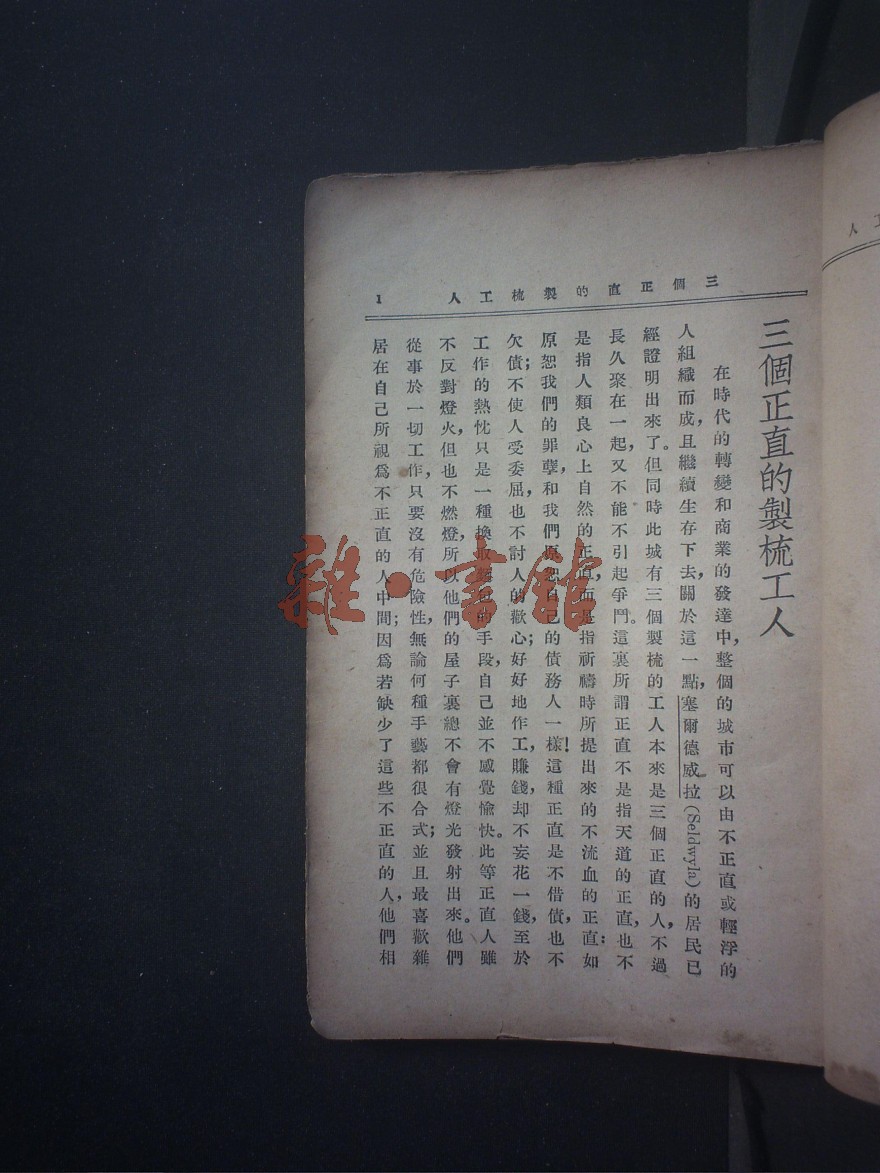 三個正直的製梳工人 1
三個正直的製梳工人
在時代的轉變和商業的發達中,整個的城市可以由不正直或輕浮的
人組織而成,且繼續生存下去,關於這一點,塞爾德威拉(Seldwyla)的居民已
經證明出來了。但同時此城有三個製梳的工人本來是三個正直的人,不過
長久聚在一起,又不能不引起爭鬥。這裏所謂正直不是指天道的正直,也不
是指人類良心上自然的正直,而是指祈禱時所提出來的不流血的正直:如
原恕我們的罪孽,和我們原恕自己的債務人一樣!這種正直是不借債,也不
欠債;不使人受委屈,也不討人的歡心;好好地作工,賺錢,却不妄花一錢,至於
工作的熱忱只是一種換取的手段,自己並不感覺愉快。此等正直人雖
不反對燈火,但也不燃燈,所以他們的屋子裏總不會有燈光發射出來。他們
從事於一切工作,只要沒有危險性,無論何種手藝都很合式;並且最喜歡雜
居在自己所視爲不正直的人中間;因爲若缺少了這些不正直的人,他們相
雜·書館
人工